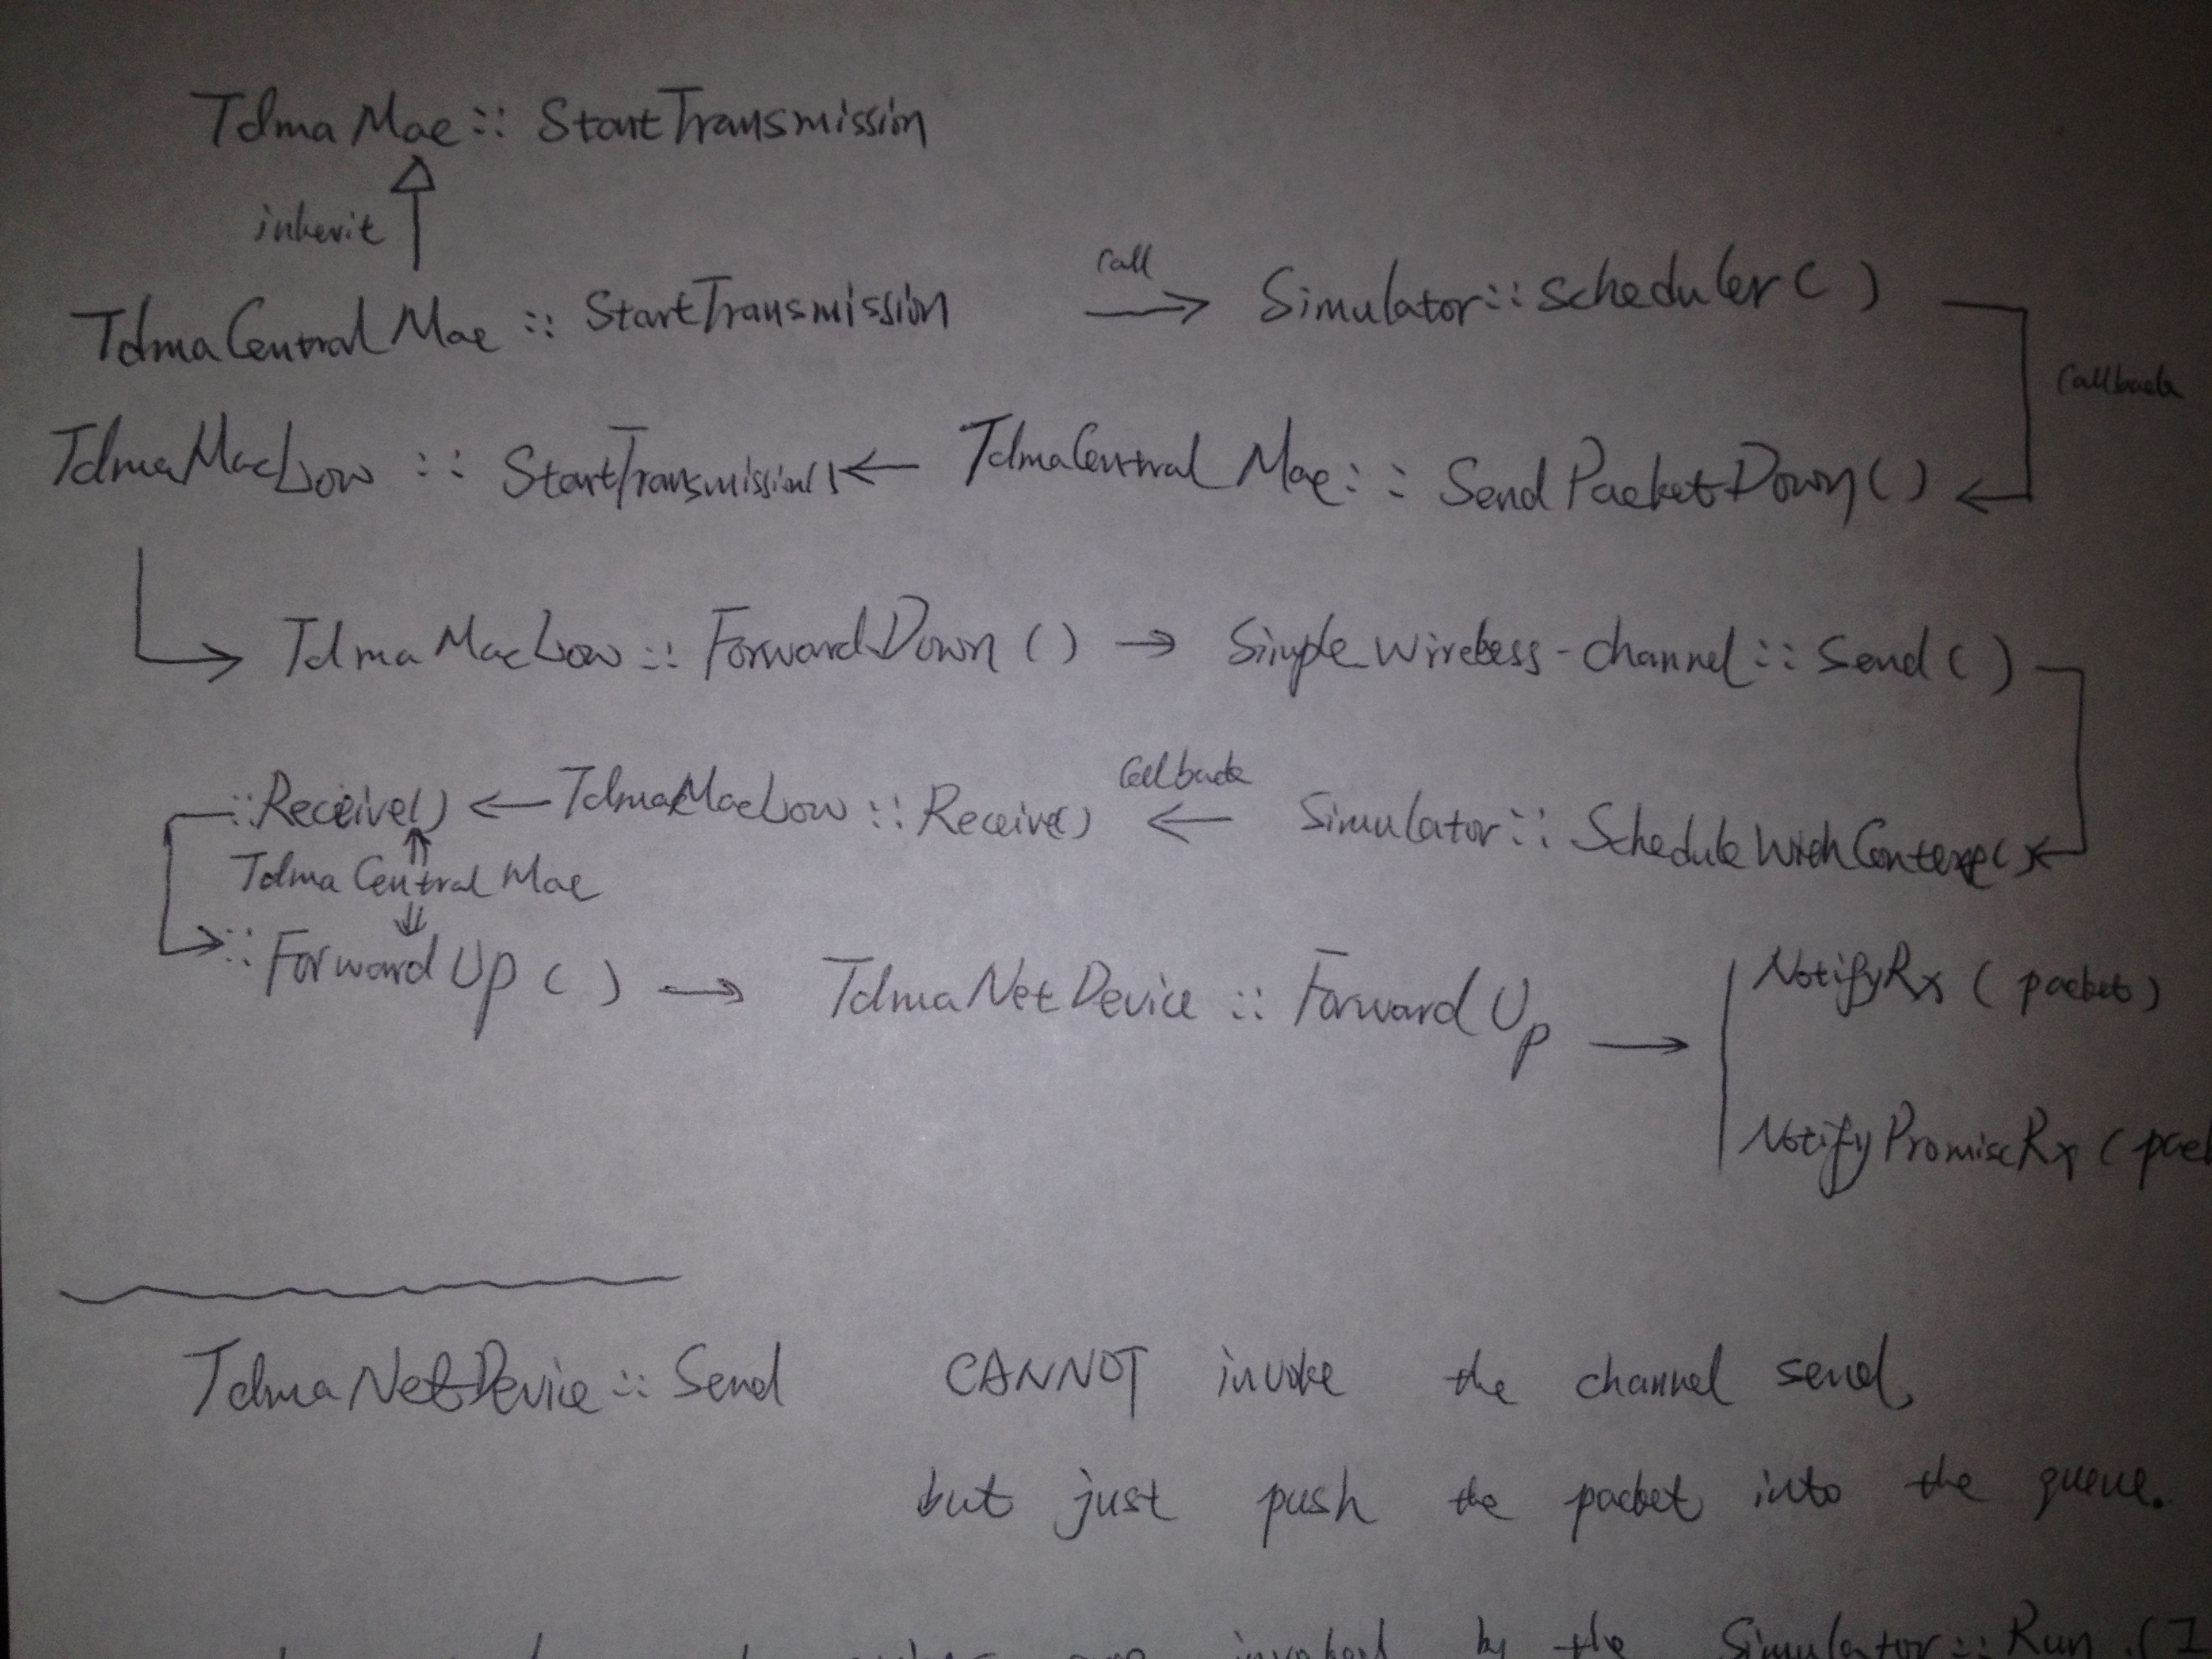 TdmaMac :: StartTransmission
inherit
call
TdmaCentralMac :: StartTransmission → Simulator::scheduler( )
callback
TdmaMacLow :: StartTransmission() ← TdmaCentral Mac :: SendPacketDown( )
TdmaMacLow :: ForwardDown ( ) → Simple wireless-channel :: Send ( )
callback
::Receive() ← TdmaMacLow :: Receive() ← Simulator :: ScheduleWithContext( )
Tdma Central Mac
:: Forward Up ( ) → TdmaNetDevice :: Forward Up →
NotifyRx ( packet )
NotifyPromiscRx (
TdmaNetDevice :: Send CANNOT invoke the channel send,
but just push the packet into the queue.
invoked by the Simulator :: Run